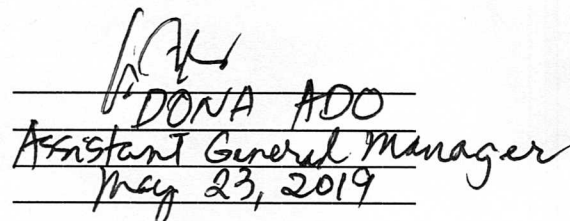 DONA ADO
Assistant General Manager
May 23, 2019